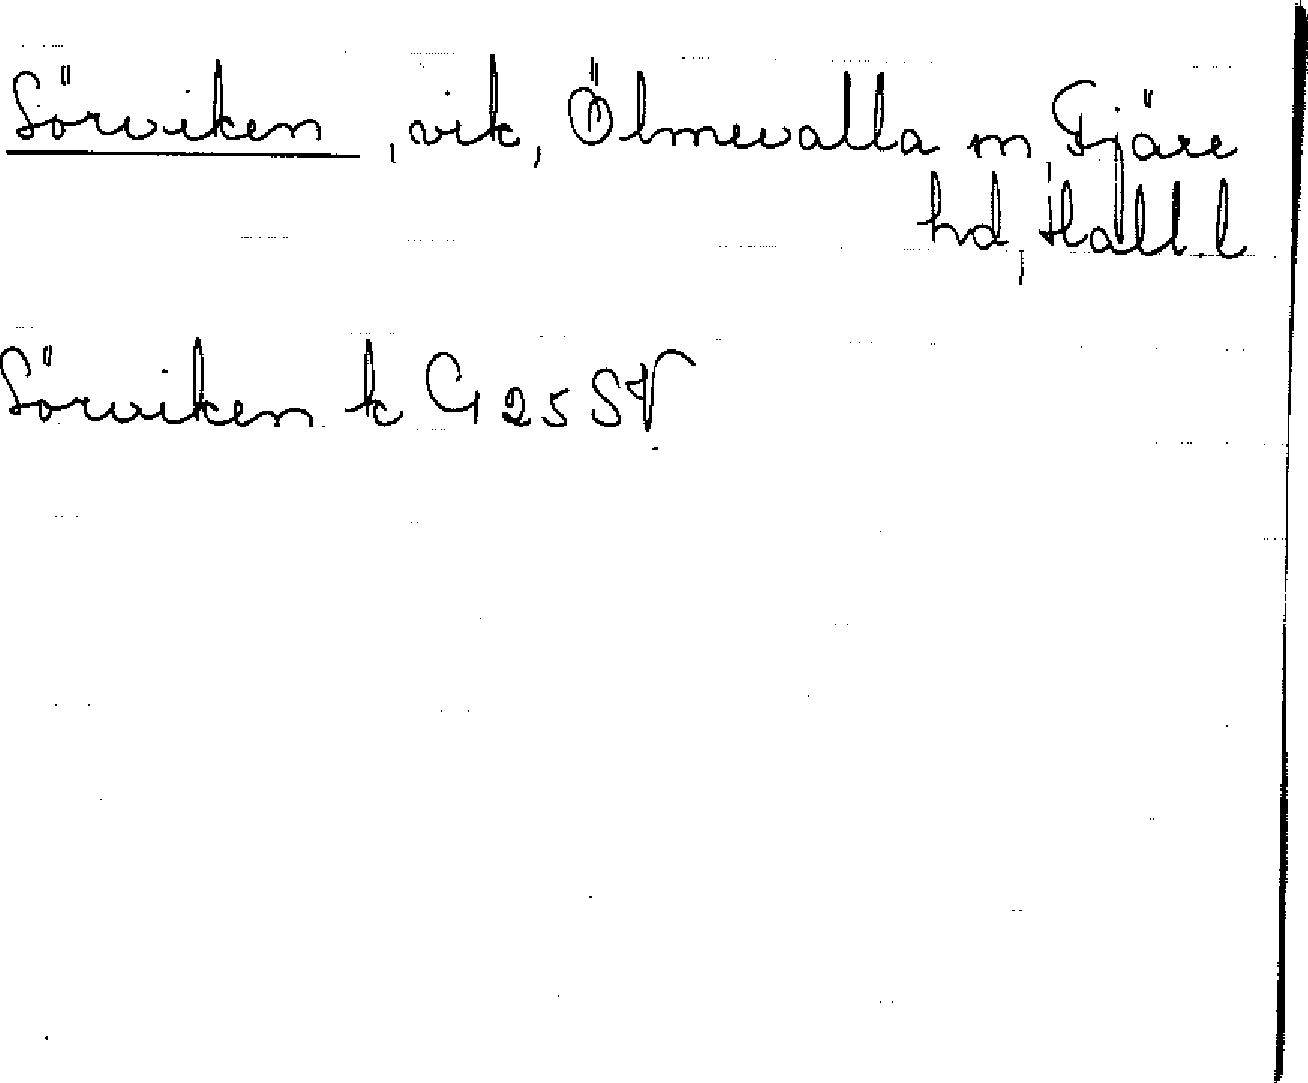 Sörviken, vik, Ölmevalla sn, Fjäre
hd, Hall. l
Sörviken k G 25 SV